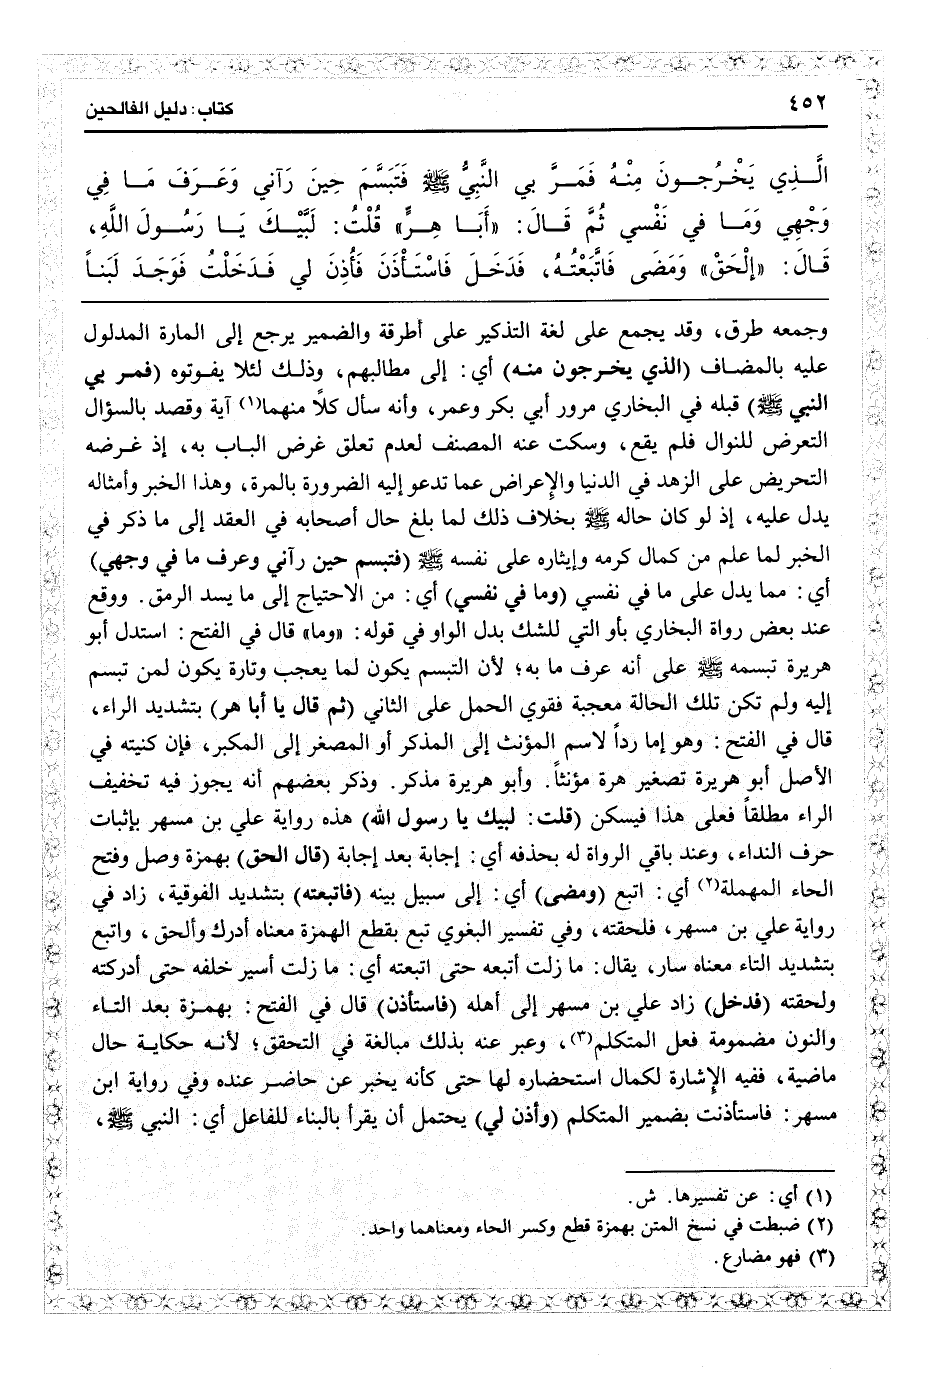 ٤٥٢
كتاب: دليل الفالحين
الَّـذِي يَخْرُجُـونَ مِنْـهُ فَمَـرَّ بِي النَّبِيُّ ﷺ فَتَبَسَّمَ حِينَ رَآنِي وَعَـرَفَ مَـا فِي
وَجْهِي وَمَـا فِي نَفْسِي ثُمَّ قَـالَ: «أَبَـا هِـرٍّ» قُلْتُ: لَبَّيْـكَ يَـا رَسُـولَ اللَّهِ،
قَـالَ: «إِلْحَقْ» وَمَضَى فَاتَّبَعْتُـهُ، فَدَخَلَ فَاسْتَـأْذَنَ فَأُذِنَ لي فَـدَخَلْتُ فَوَجَـدَ لَبَنـاً
وجمعه طرق، وقد يجمع على لغة التذكير على أطرقة والضمير يرجع إلى المارة المدلول
عليه بالمضـاف (الذي يخـرجون منـه) أي: إلى مطالبهم، وذلـك لئلا يفـوتوه (فمـر بي
النبي ﷺ) قبله في البخاري مرور أبي بكر وعمر، وأنه سأل كلاً منهما(١) آية وقصد بالسؤال
التعرض للنوال فلم يقع، وسكت عنه المصنف لعدم تعلق غرض البـاب به، إذ غـرضه
التحريض على الزهد في الدنيا والإعراض عما تدعو إليه الضرورة بالمرة، وهذا الخبر وأمثاله
يدل عليه، إذ لو كان حاله ﷺ بخلاف ذلك لما بلغ حال أصحابه في العقد إلى ما ذكر في
الخبر لما علم من كمال كرمه وإيثاره على نفسه ﷺ (فتبسم حين رآني وعرف ما في وجهي)
أي: مما يدل على ما في نفسي (وما في نفسي) أي: من الاحتياج إلى ما يسد الرمق. ووقع
عند بعض رواة البخاري بأو التي للشك بدل الواو في قوله: «وما» قال في الفتح: استدل أبو
هريرة تبسمه ﷺ على أنه عرف ما به؛ لأن التبسم يكون لما يعجب وتارة يكون لمن تبسم
إليه ولم تكن تلك الحالة معجبة فقوي الحمل على الثاني (ثم قال يا أبا هر) بتشديد الراء،
قال في الفتح: وهو إما رداً لاسم المؤنث إلى المذكر أو المصغر إلى المكبر، فإن كنيته في
الأصل أبو هريرة تصغير هرة مؤنثاً. وأبو هريرة مذكر. وذكر بعضهم أنه يجوز فيه تخفيف
الراء مطلقاً فعلى هذا فيسكن (قلت: لبيك يا رسول الله) هذه رواية علي بن مسهر بإثبات
حرف النداء، وعند باقي الرواة له بحذفه أي: إجابة بعد إجابة (قال الحق) بهمزة وصل وفتح
الحاء المهملة(٢) أي: اتبع (ومضى) أي: إلى سبيل بيته (فاتبعته) بتشديد الفوقية، زاد في
رواية علي بن مسهر، فلحقته، وفي تفسير البغوي تبع بقطع الهمزة معناه أدرك وألحق، واتبع
بتشديد التاء معناه سار، يقال: ما زلت أتبعه حتى اتبعته أي: ما زلت أسير خلفه حتى أدركته
ولحقته (فدخل) زاد علي بن مسهر إلى أهله (فاستأذن) قال في الفتح: بهمـزة بعد التـاء
والنون مضمومة فعل المتكلم(٣)، وعبر عنه بذلك مبالغة في التحقق؛ لأنـه حكايـة حال
ماضية، ففيه الإشارة لكمال استحضاره لها حتى كأنه يخبر عن حاضـر عنده وفي رواية ابن
مسهر: فاستأذنت بضمير المتكلم (وأذن لي) يحتمل أن يقرأ بالبناء للفاعل أي: النبي ﷺ،
(١) أي: عن تفسيرها. ش.
(٢) ضبطت في نسخ المتن بهمزة قطع وكسر الحاء ومعناهما واحد.
(٣) فهو مضارع.